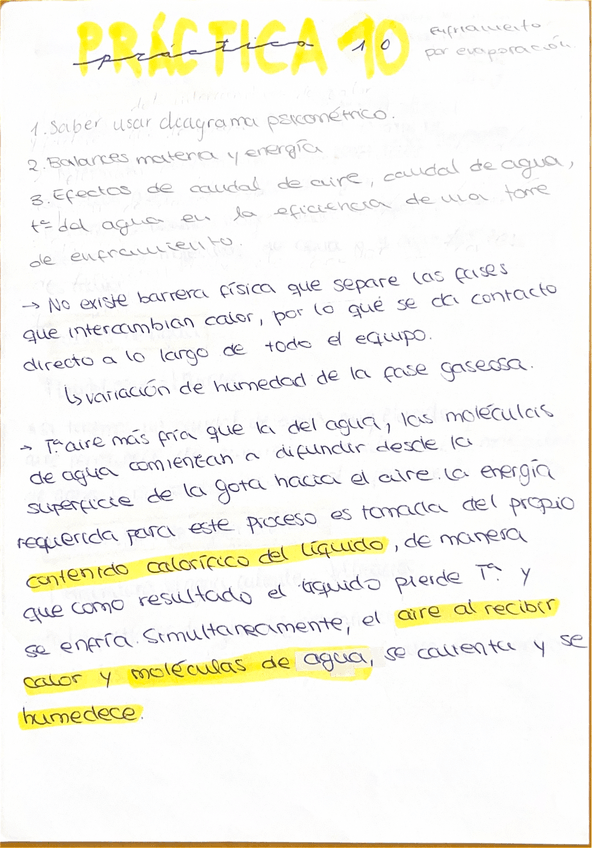 PRÁCTICA 10
práctica 10
Enfriamiento
por evaporación.
1. Saber usar diagrama psicométrico.
2. Balances materia y energía
3. Efectos de caudal de aire, caudal de agua,
tª del agua en la eficiencia de una torre
de enfriamiento.
→ No existe barrera física que separe las fases
que intercambian calor, por lo qué se da contacto
directo a lo largo de todo el equipo.
↳ variación de humedad de la fase gaseosa.
→ Tª aire más fría que la del agua, las moléculas
de agua comienzan a difundir desde la
superficie de la gota hacia el aire. La energía
requerida para este proceso es tomada del propio
contenido calorífico del líquido, de manera
que como resultado el líquido pierde Tª y
se enfría. Simultáneamente, el aire al recibir
calor y moléculas de agua, se calienta y se
humedece.